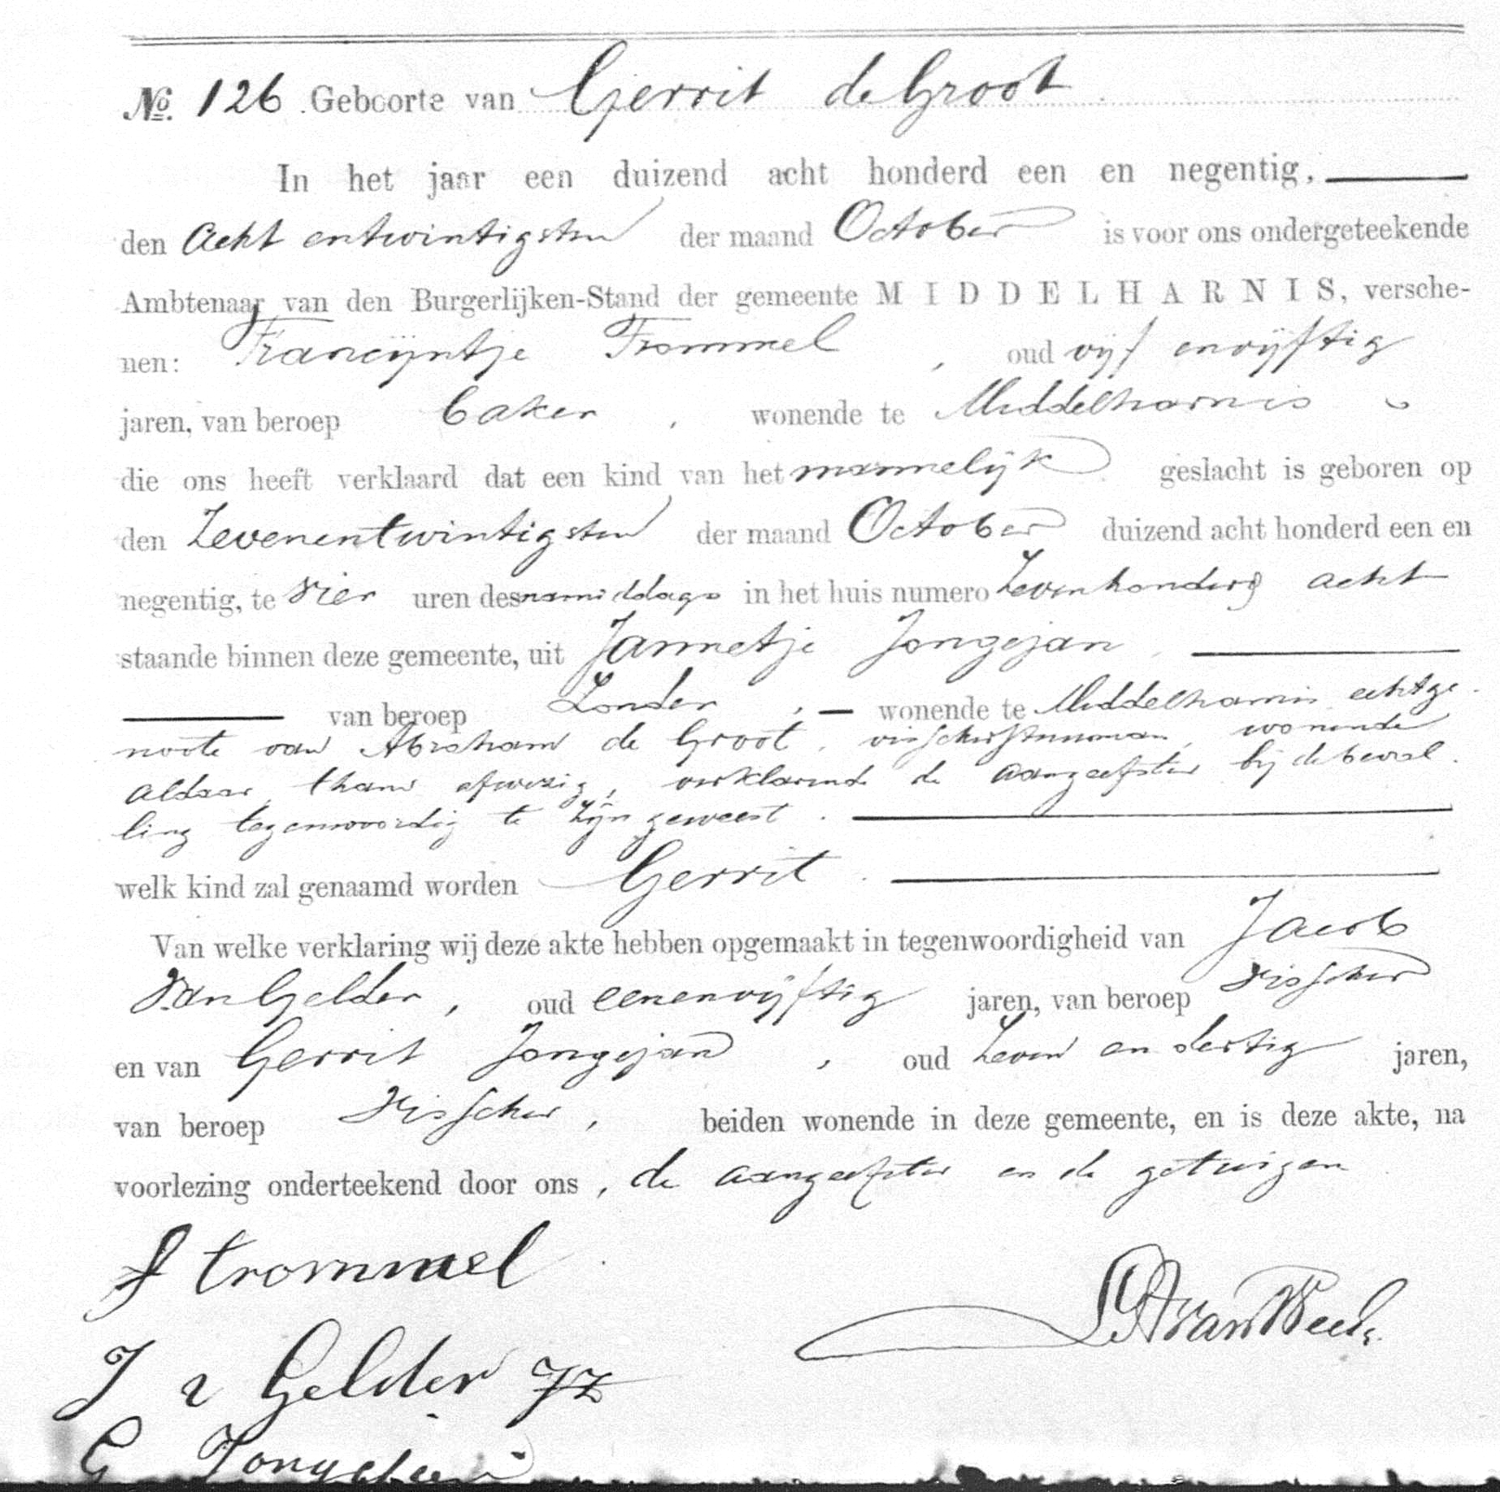 No. 126. Geboorte van Gerrit de Groot
In het jaar een duizend acht honderd een en negentig,
den Acht entwintigsten der maand October is voor ons ondergeteekende
Ambtenaar van den Burgerlijken-Stand der gemeente MIDDELHARNIS, versche-
nen: Francijntje Trommel, oud vijf envijftig
jaren, van beroep baker, wonende te Middelharnis
die ons heeft verklaard dat een kind van het mannelijk geslacht is geboren op
den Zevenentwintigsten der maand October duizend acht honderd een en
negentig, te vier uren des namiddags in het huis numero Zevenhonderd acht
staande binnen deze gemeente, uit Jannetje Jongejan,
van beroep Zonder, wonende te Middelharnis echtge-
noote van Abraham de Groot, visscherstuurman, wonende
aldaar, thans afwezig, verklarende de aangeefster bij de beval-
ling tegenwoordig te zijn geweest.
welk kind zal genaamd worden Gerrit.
Van welke verklaring wij deze akte hebben opgemaakt in tegenwoordigheid van Jacob
Van Gelder, oud eenenvijftig jaren, van beroep visscher
en van Gerrit Jongejan, oud Zeven en dertig jaren,
van beroep visscher, beiden wonende in deze gemeente, en is deze akte, na
voorlezing onderteekend door ons, de aangeefster en de getuigen
f trommel
J v Gelder Jz
G Jongejan